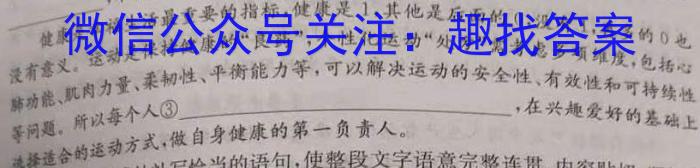 健康是 最重要的指标,健康是1,其他是后面的0 的0也
微信公众号关注:趣找答案
没有意义。运动是保持健康的“良 性化运动”处 多项维度,包括心
肺功能、肌肉力量、柔韧性、平衡能力等,可以解决运动的安全性、有效性和可持续性
等问题。所以每个人③ ,在兴趣爱好的基础上
选择适合的运动方式,做自身健康的第一负责人。
补写恰当的语句,使整段文字语意完整连贯,内容贴切